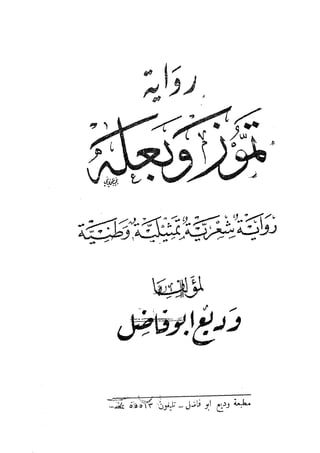 رواية
تموز وبعله
رواية شعرية تمثيلية وطنية
لمؤلفها
وديع ابو فاضل
مطبعة وديع ابو فاضل - تليفون